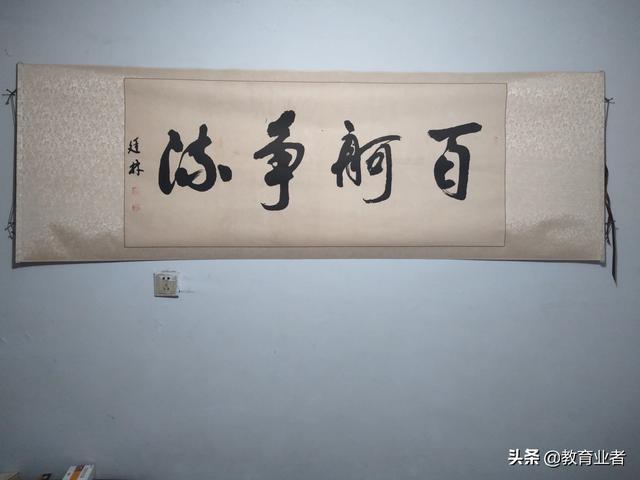 百舸争流
廷林
头条 @教育业者